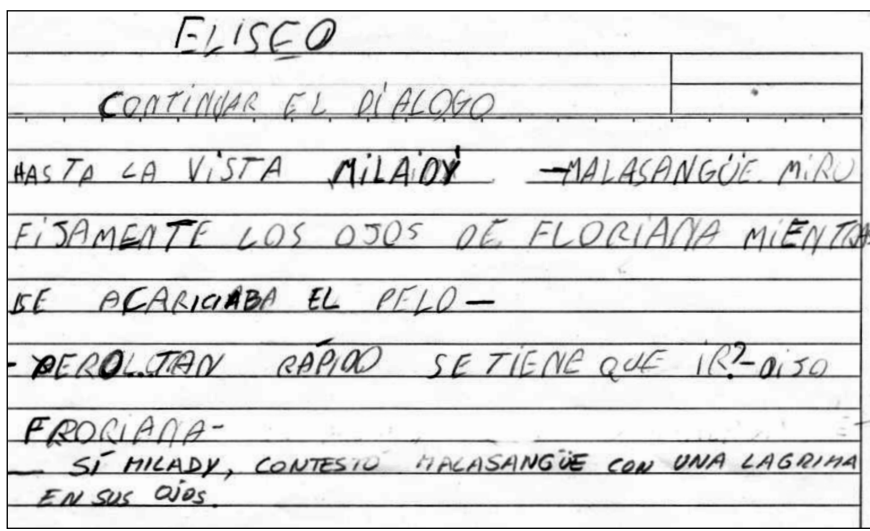 ELISEO
CONTINUAR EL DIALOGO
HASTA LA VISTA MILAIDY —MALASANGÜE MIRO
FIJAMENTE LOS OJOS DE FLORIANA MIENTRAS
SE ACARICIABA EL PELO—
- PERO TAN RÁPIDO SE TIENE QUE IR?-DIJO
FRORIANA-
— SÍ MILADY, CONTESTÓ MALASANGÜE CON UNA LAGRIMA
EN SUS OJOS.